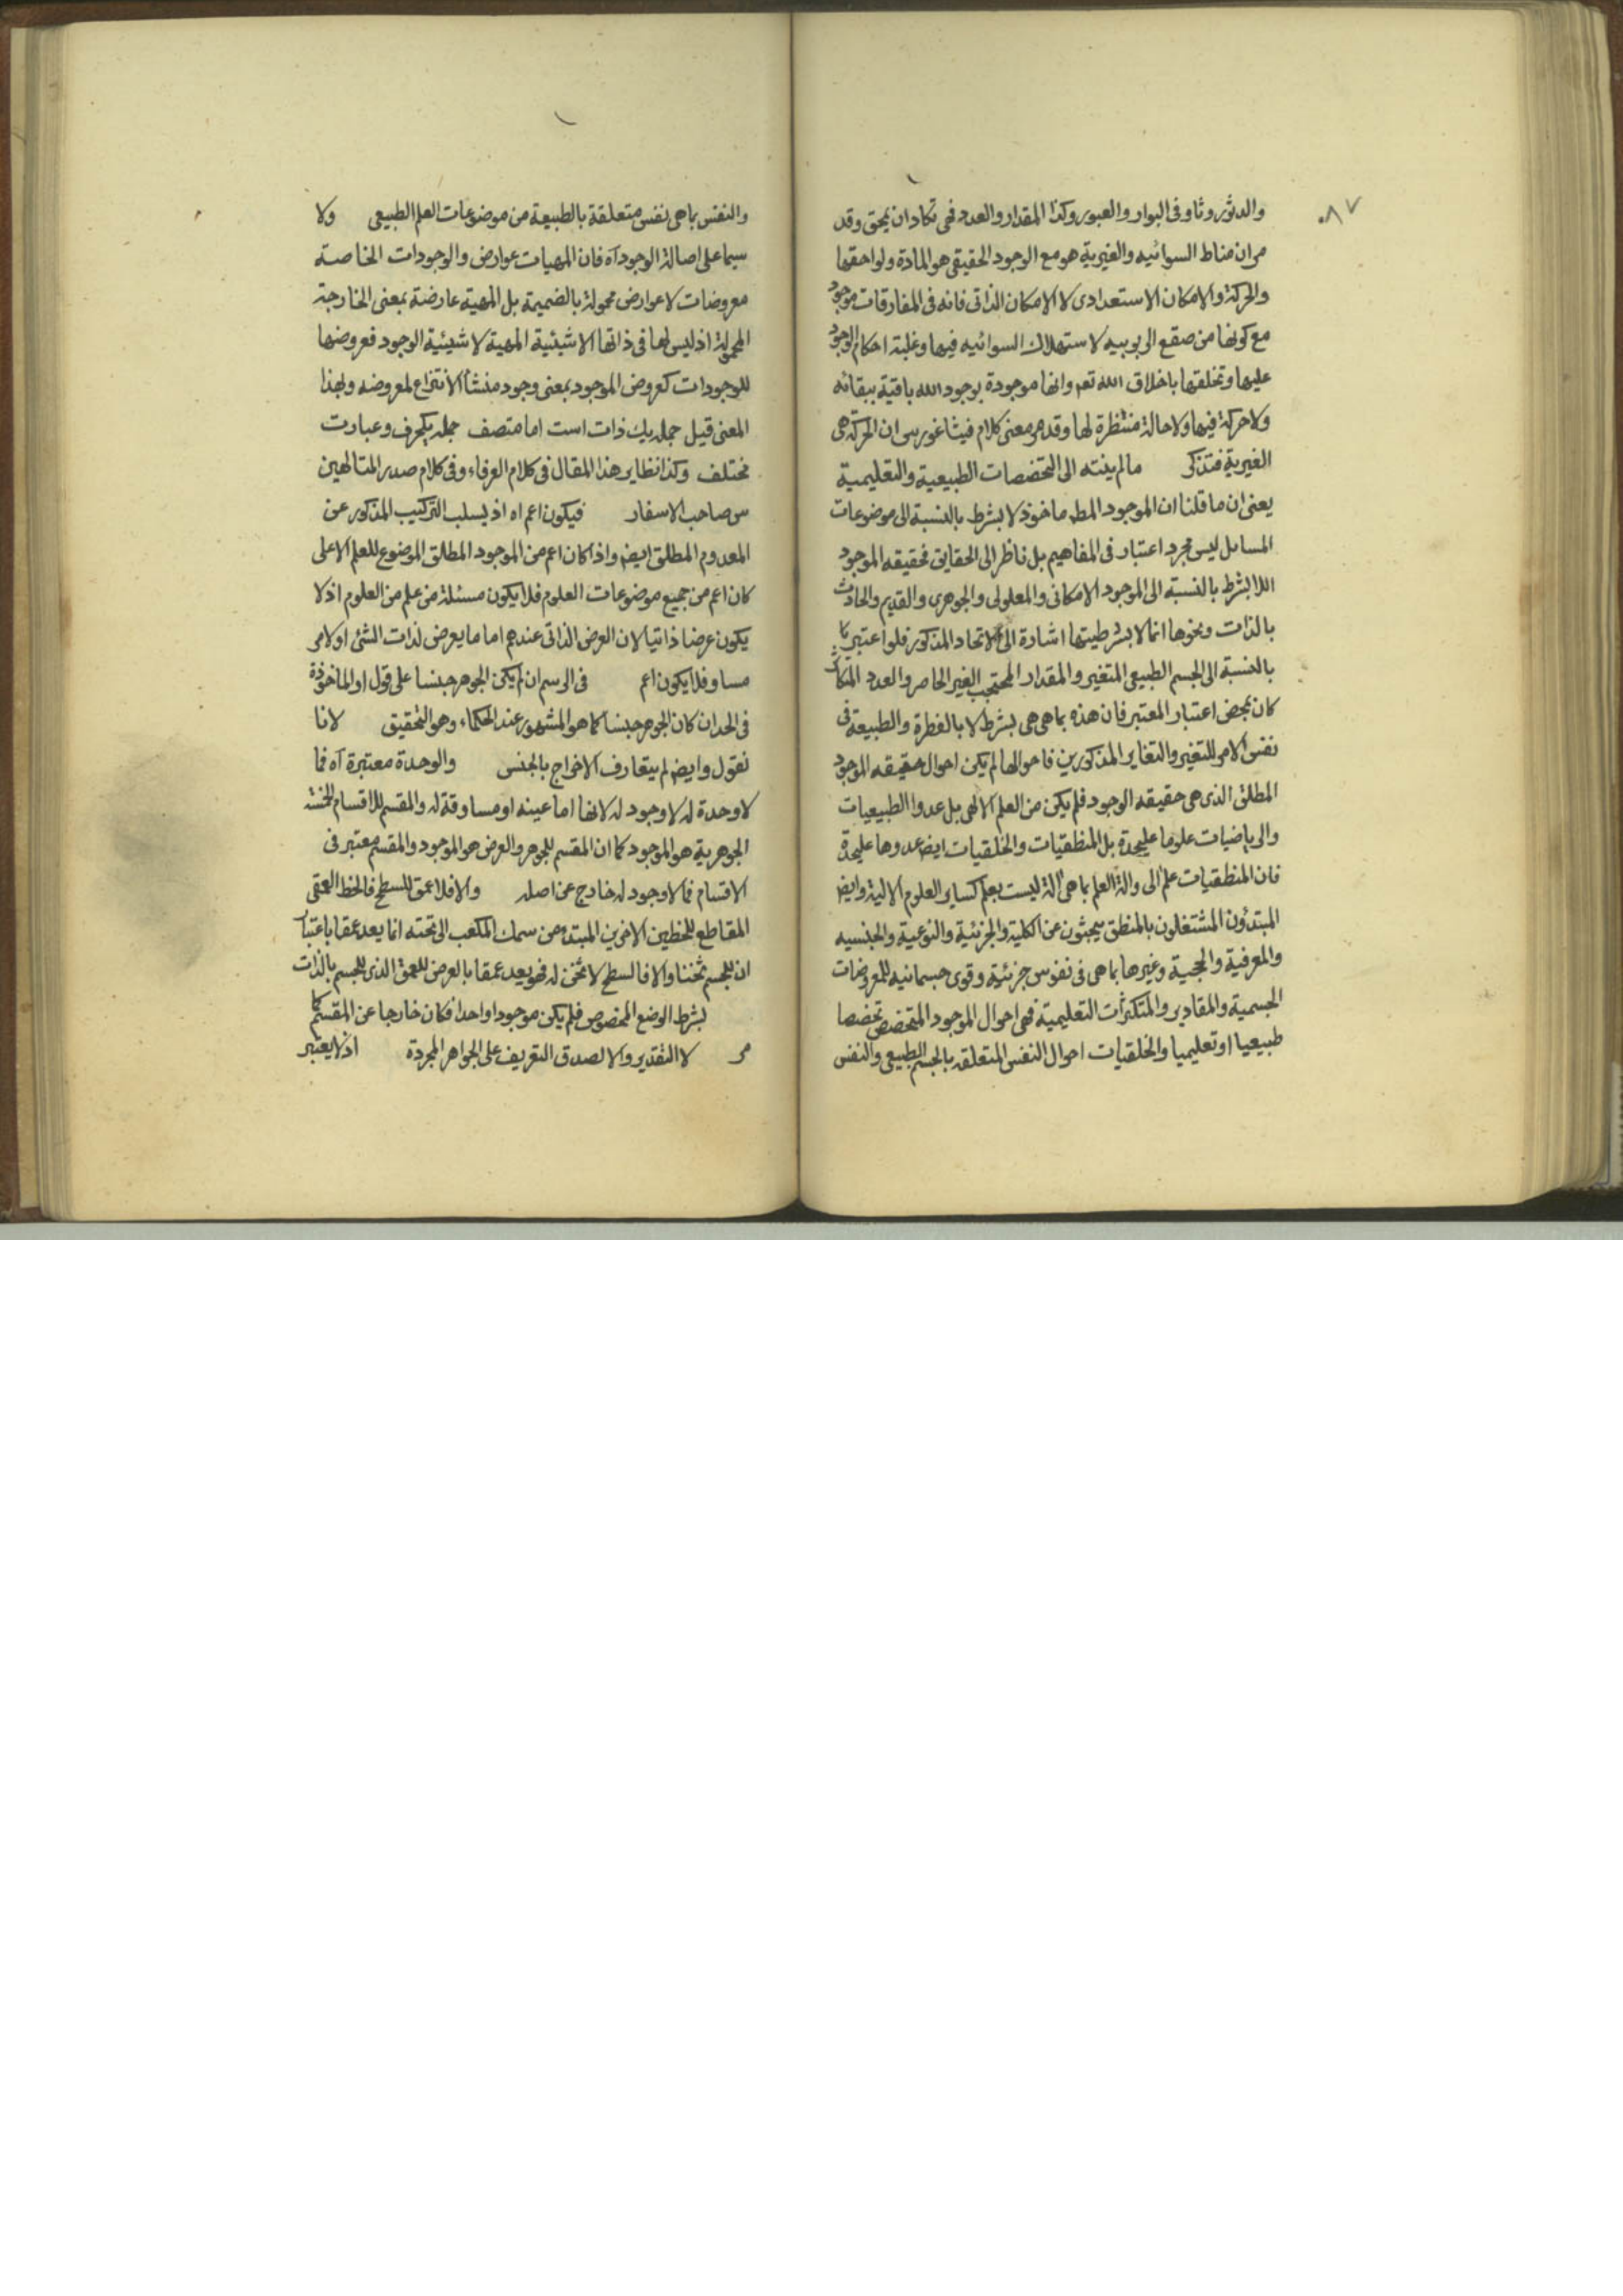 ٨٧
والدثور وثاو فى البوار والعبور وكذا المقدار والعدد فهى تكاد ان يمحق وقد
مر ان مناط السوائيه والغيرية هو مع الوجود الحقيقى هو المادة ولواحقها
والحركة والامكان الاستعدادى لا الامكان الذاتى فانه فى المفارقات موجود
مع كونها من صقع الربوبيه لاستهلاك السوائيه فيها وغلبة احكام الوجود
عليها وتخلقها باخلاق الله تعم وانها موجودة بوجود الله باقية ببقائه
ولا حركة فيها ولا حالة منتظرة لها وقد مر معنى كلام فيثاغورس ان الحركة هى
الغيرية فتذكر مالم ينته الى التخصصات الطبيعية والتعليمية
يعنى ان ما قلنا ان الموجود المط ماخوذ لا بشرط بالنسبة الى موضوعات
المسايل ليس مجرد اعتبار فى المفاهيم بل ناظر الى الحقايق فحقيقه الموجود
اللابشرط بالنسبة الى الموجود الامكانى والمعلولى والجوهرى والقديم والحادث
بالذات ونحوها انما لا بشرطيتها اشارة الى الاتحاد المذكور فلو اعتبر
بالنسبة الى الجسم الطبيعى المتغير والمقدار المحتجب الغير الحاصر والعدد
كان بمحض اعتبار المعتبر فان هذه بما هى هى بشرط لا بالفطرة والطبيعة فى
نفس الامر للتغير والتغاير المذكورين فاحوالها لم يكن احوال حقيقه الموجود
المطلق الذى هى حقيقه الوجود فلم يكن من العلم الالهى بل عدوا الطبيعيات
والرياضيات علوما عليحدة بل المنطقيات والخلقيات ايض عدوها عليحدة
فان المنطقيات علم الى والة العلم بما هى الة ليست بعلم كساير العلوم الالية وايض
المبتدؤن المشتغلون بالمنطق يبحثون عن الكلية والجزئية والنوعية والجنسيه
والمعرفية والحجية وغيرها بما هى فى نفوس جزئية وقوى جسمانيه للمعروضات
الجسمية والمقادير والمتكثرات التعليمية فهى احوال الموجود المتخصص تخصصا
طبيعيا او تعليميا والخلقيات احوال النفس المتعلقه بالجسم الطبيعى والنفس
والنفس بما هى نفس متعلقة بالطبيعة من موضوعات العلم الطبيعى ولا
سيما على اصالة الوجود آه فان المهيات عوارض والوجودات الخاصة
معروضات لا عوارض محمولة بالضميمة بل المهية عارضة بمعنى الخارجة
المحمولة اذ ليس لها فى ذاتها الا شيئية المهية لا شيئية الوجود فعروضها
للوجودات كعروض الموجود بمعنى وجود منشأ الانتزاع لمعروضه وبهذا
المعنى قيل جمله يك ذات است اما متصف جمله يكحرف وعبارت
مختلف وكذا نظاير هذا المقال فى كلام العرفاء وفى كلام صدر المتالهين
س صاحب الاسفار فيكون اعم اه اذ يسلب التركيب المذكور عن
المعدوم المطلق ايض واذا كان اعم من الموجود المطلق الموضوع للعلم الاعلى
كان اعم من جميع موضوعات العلوم فلا يكون مسئلة من علم من العلوم اذ لا
يكون عرضا ذاتيا لان العرض الذاتى عندهم اما ما يعرض لذات الشئ او لامر
مساو فلا يكون اعم فى الرسم ان لم يكن الجوهر جنسا على قول او الماخوذة
فى الحد ان كان الجوهر جنسا كما هو المشهور عند الحكماء وهو التحقيق لانا
نقول وايض لم يتعارف الاخراج بالجنس والوحدة معتبرة آه فما
لا وحدة له لا وجود له لانها اما عينه او مساوقة له والمقسم للاقسام الخمسة
الجوهرية هو الموجود كما ان المقسم للجوهر والعرض هو الموجود والمقسم معتبر فى
الاقسام فما لا وجود له خارج عن اصله والا فلا عمق للسطح فالخط العمقى
المقاطع للخطين الاخرين المبتدء من سمك المكعب الى تحته انما يعد عمقا باعتبار
ان للجسم ثخنا والا فالسطح لا ثخن له فهو يعد عمقا بالعرض للعمق الذى للجسم بالذات
بشرط الوضع المخصوص فلم يكن موجودا واحدا فكان خارجا عن المقسم كما
مر لا التقدير والا لصدق التعريف على الجواهر المجردة اذ لا يعتبر